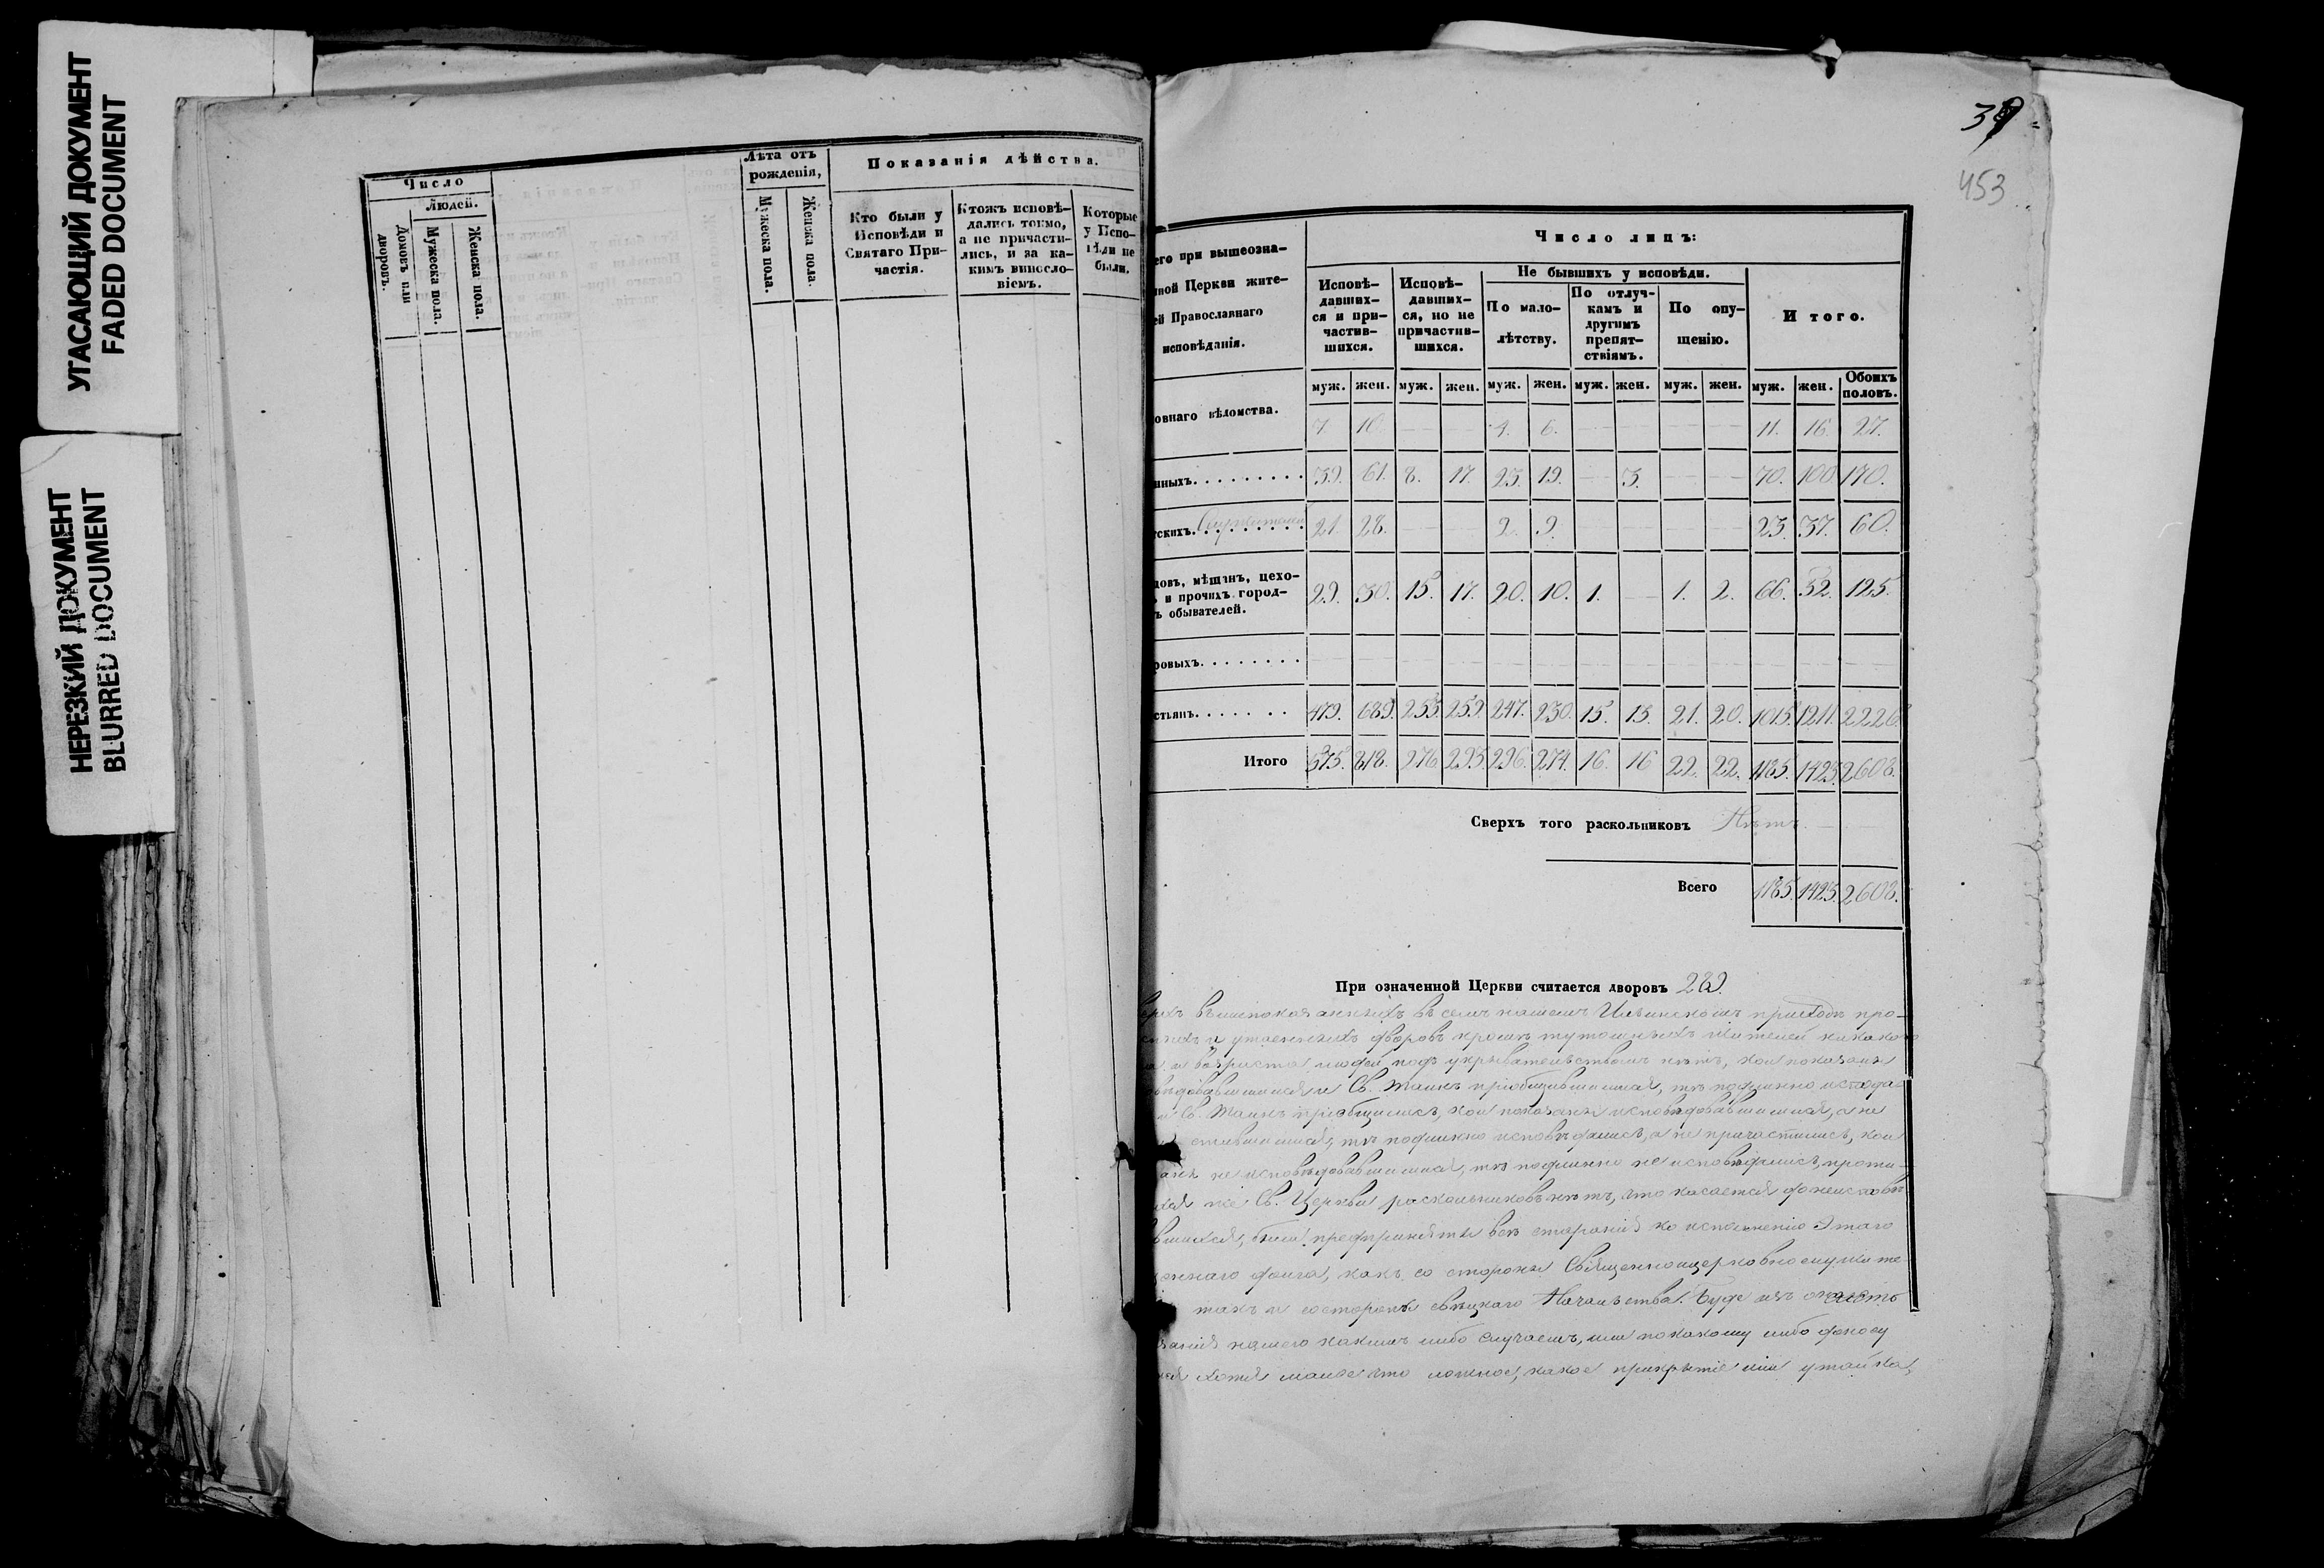 УГАСАЮЩИЙ ДОКУМЕНТ
FADED DOCUMENT
НЕРЕЗКИЙ ДОКУМЕНТ
BLURRED DOCUMENT
Число
Людей.
Домовъ или
дворовъ.
Мужеска пола.
Женска пола.
Лѣта отъ
рожденія,
Мужеска пола.
Женска пола.
Показанія дѣйства.
Кто были у
Исповѣди и
Святаго При-
частія.
Ктожъ исповѣ-
дались токмо,
а не причасти-
лись, и за ка-
кимъ виносло-
віемъ.
Которые
у Испо-
вѣди не
были.
453
его при вышеозна-
ной Церкви жите-
ей Православнаго
исповѣданія.
Число лицъ:
Исповѣ-
давших-
ся и при-
частив-
шихся.
Исповѣ-
давших-
ся, но не
причастив-
шихся.
Не бывшихъ у исповѣди.
По мало-
лѣтству.
По отлуч-
камъ и
другимъ
препят-
ствіямъ.
По опу-
щенію.
Итого.
муж. жен. муж. жен. муж. жен. муж. жен. муж. жен. муж. жен. Обоихъ
половъ.
овнаго вѣдомства.
7. 10. — — 4. 6. — — — — 11. 16. 27.
нныхъ. . . . . . . . . 39. 61. 8. 17. 23. 19. — 3. — — 70. 100. 170.
тскихъ. . . . . . . . . 21. 28. — — 2. 9. 23. 37. 60.
цовъ, мѣщанъ, цехо-
и прочихъ город-
ъ обывателей.
29. 30. 15. 17. 20. 10. 1. — 1. 2. 66. 125.
ровыхъ. . . . . . . .
стьянъ. . . . . . . 479. 689. 253. 259. 247. 230. 15. 13. 21. 20. 1015. 1211. 2226.
Итого 575. 818. 276. 293. 296. 274. 16. 16 22. 22. 1185. 1423. 2608.
Сверхъ того раскольниковъ Нѣтъ. —
Всего 1185. 1423. 2608.
При означенной Церкви считается дворовъ 289.
вышепоказанныхъ въ семъ нашемъ приходѣ про-
и утаенныхъ дворовъ кромѣ тутошныхъ жителей какаго
и возраста людей подъ укрывательствомъ нѣтъ, кои показаны
и Св. Таинъ пріобщившимися, тѣ подлинно
и Св. Таинъ пріобщились, кои показаны исповѣдовавшимися, а не
тѣ подлинно исповѣдались, а не причастились, кои
не исповѣдовавшимися, тѣ подлинно не исповѣдались, проти-
же Св. Церкви раскольниковъ нѣтъ, что касается до
были предприняты всѣ старанія ко исполненію этаго
долга, какъ со стороны Священноцерковнослужите-
такъ и со стороны свѣцкаго Начальства. Буде изъ
нашего какимъ либо случаемъ, или по какому либо доносу
хотя малое что ложное, какое прикрытіе или утайка,